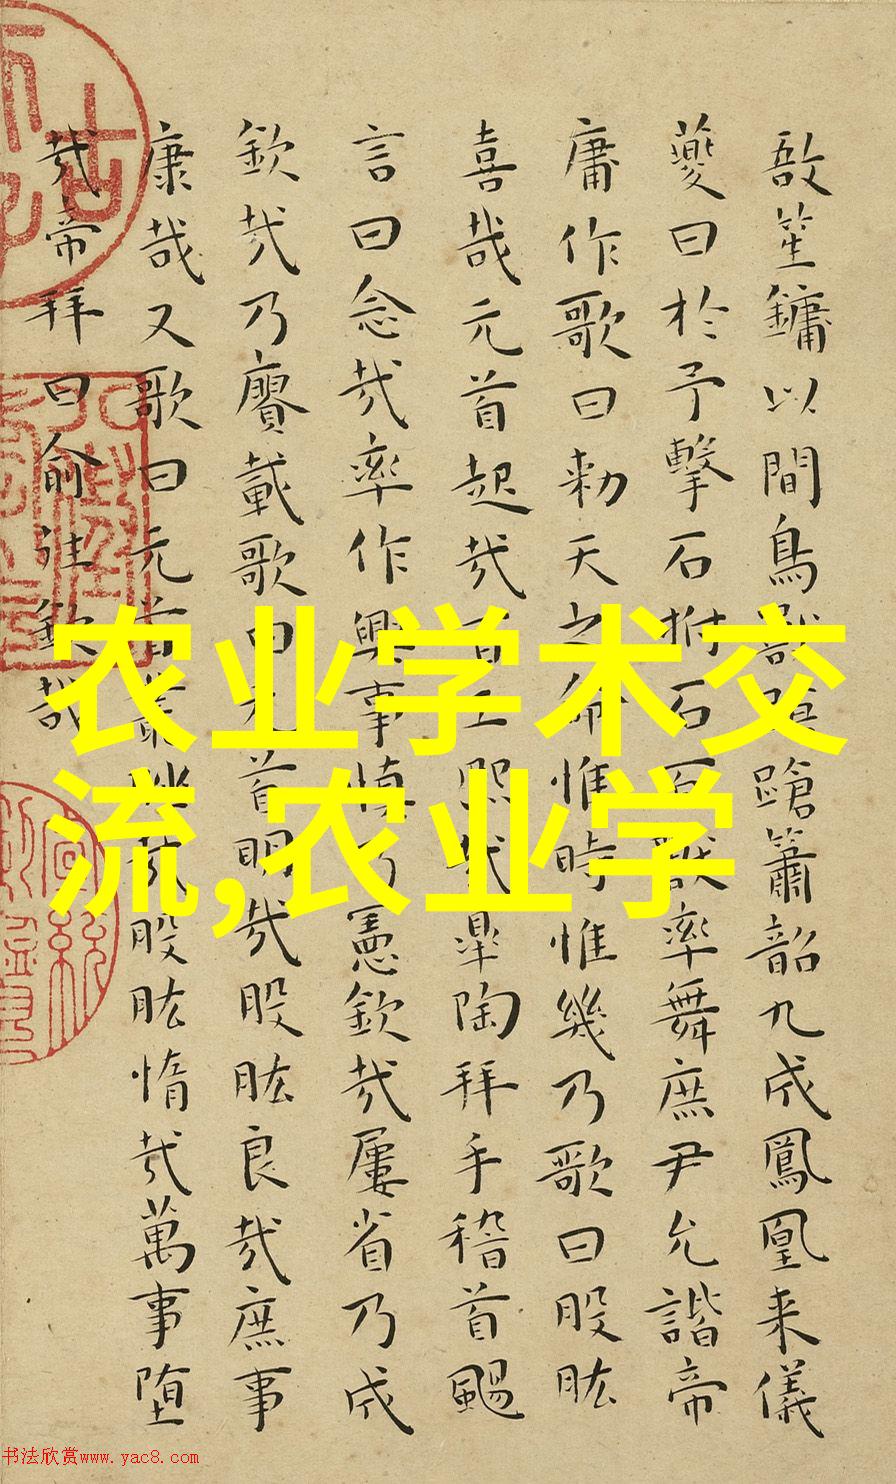 敔笙鏞以間鳥獸蹌簫韶九成鳳凰来儀
夔曰於予擊石拊石百獸率舞庶尹允諧帝
庸作歌曰勑天之命惟時惟幾乃歌曰股肱
喜哉元首起哉百工熙哉皋陶拜手稽首颺
言曰念哉率作興事慎乃憲欽哉屢省乃成
欽哉乃賡載歌曰元首明哉股肱良哉庶事
康哉又歌曰元首叢脞哉股肱惰哉萬事堕
哉帝拜曰俞往欽哉
农业学术交
流,农业学
书法欣赏www.yac8.com